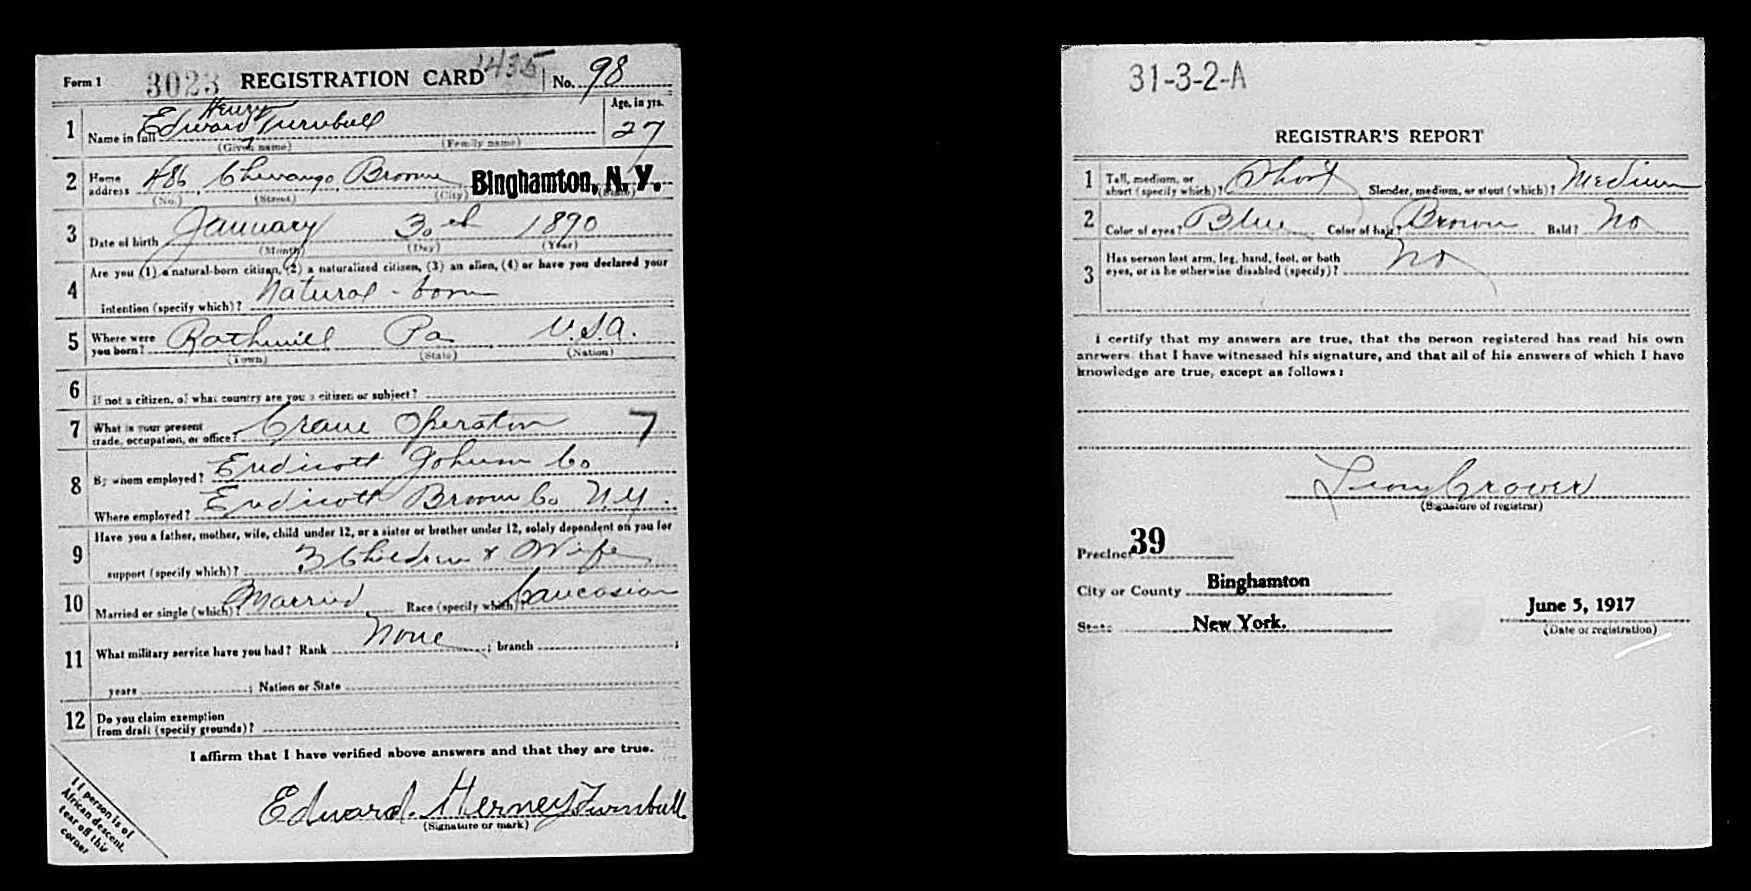 1435
Form 1 3023 REGISTRATION CARD No. 98
Henry
Age, in yrs.
1 Name in full Edward Turnbull 27
(Given name) (Family name)
2 Home address 486 Chenango Broome Binghamton, N. Y.
(No.) (Street) (City) (State)
3 Date of birth January 30th 1890
(Month) (Day) (Year)
4 Are you (1) a natural-born citizen, (2) a naturalized citizen, (3) an alien, (4) or have you declared your
intention (specify which)? Natural-born
5 Where were you born? Rathmill Pa U.S.A.
(Town) (State) (Nation)
6 If not a citizen, of what country are you a citizen or subject?
7 What is your present trade, occupation, or office? Crane Operator 7
8 By whom employed? Endicott Johnson Co
Where employed? Endicott Broome Co N.Y.
9 Have you a father, mother, wife, child under 12, or a sister or brother under 12, solely dependent on you for
support (specify which)? 3 Children & Wife
10 Married or single (which)? Married Race (specify which)? Caucasian
11 What military service have you had? Rank None ; branch ;
years ; Nation or State
12 Do you claim exemption from draft (specify grounds)?
I affirm that I have verified above answers and that they are true.
Edward. Herney Turnbull.
(Signature or mark)
If person is of
African descent,
tear off this
corner
31-3-2-A
REGISTRAR'S REPORT
1 Tall, medium, or short (specify which)? Short Slender, medium, or stout (which)? Medium
2 Color of eyes? Blue Color of hair? Brown Bald? No
3 Has person lost arm, leg, hand, foot, or both
eyes, or is he otherwise disabled (specify)? No
I certify that my answers are true, that the person registered has read his own
answers, that I have witnessed his signature, and that all of his answers of which I have
knowledge are true, except as follows:
Leon Grover
(Signature of registrar)
Precinct 39
City or County Binghamton
State New York.
June 5, 1917
(Date of registration)